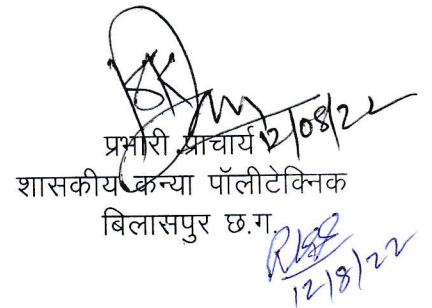 12/08/22
प्रभारी प्राचार्य
शासकीय कन्या पॉलीटेक्निक
बिलासपुर छ.ग.
12/8/22